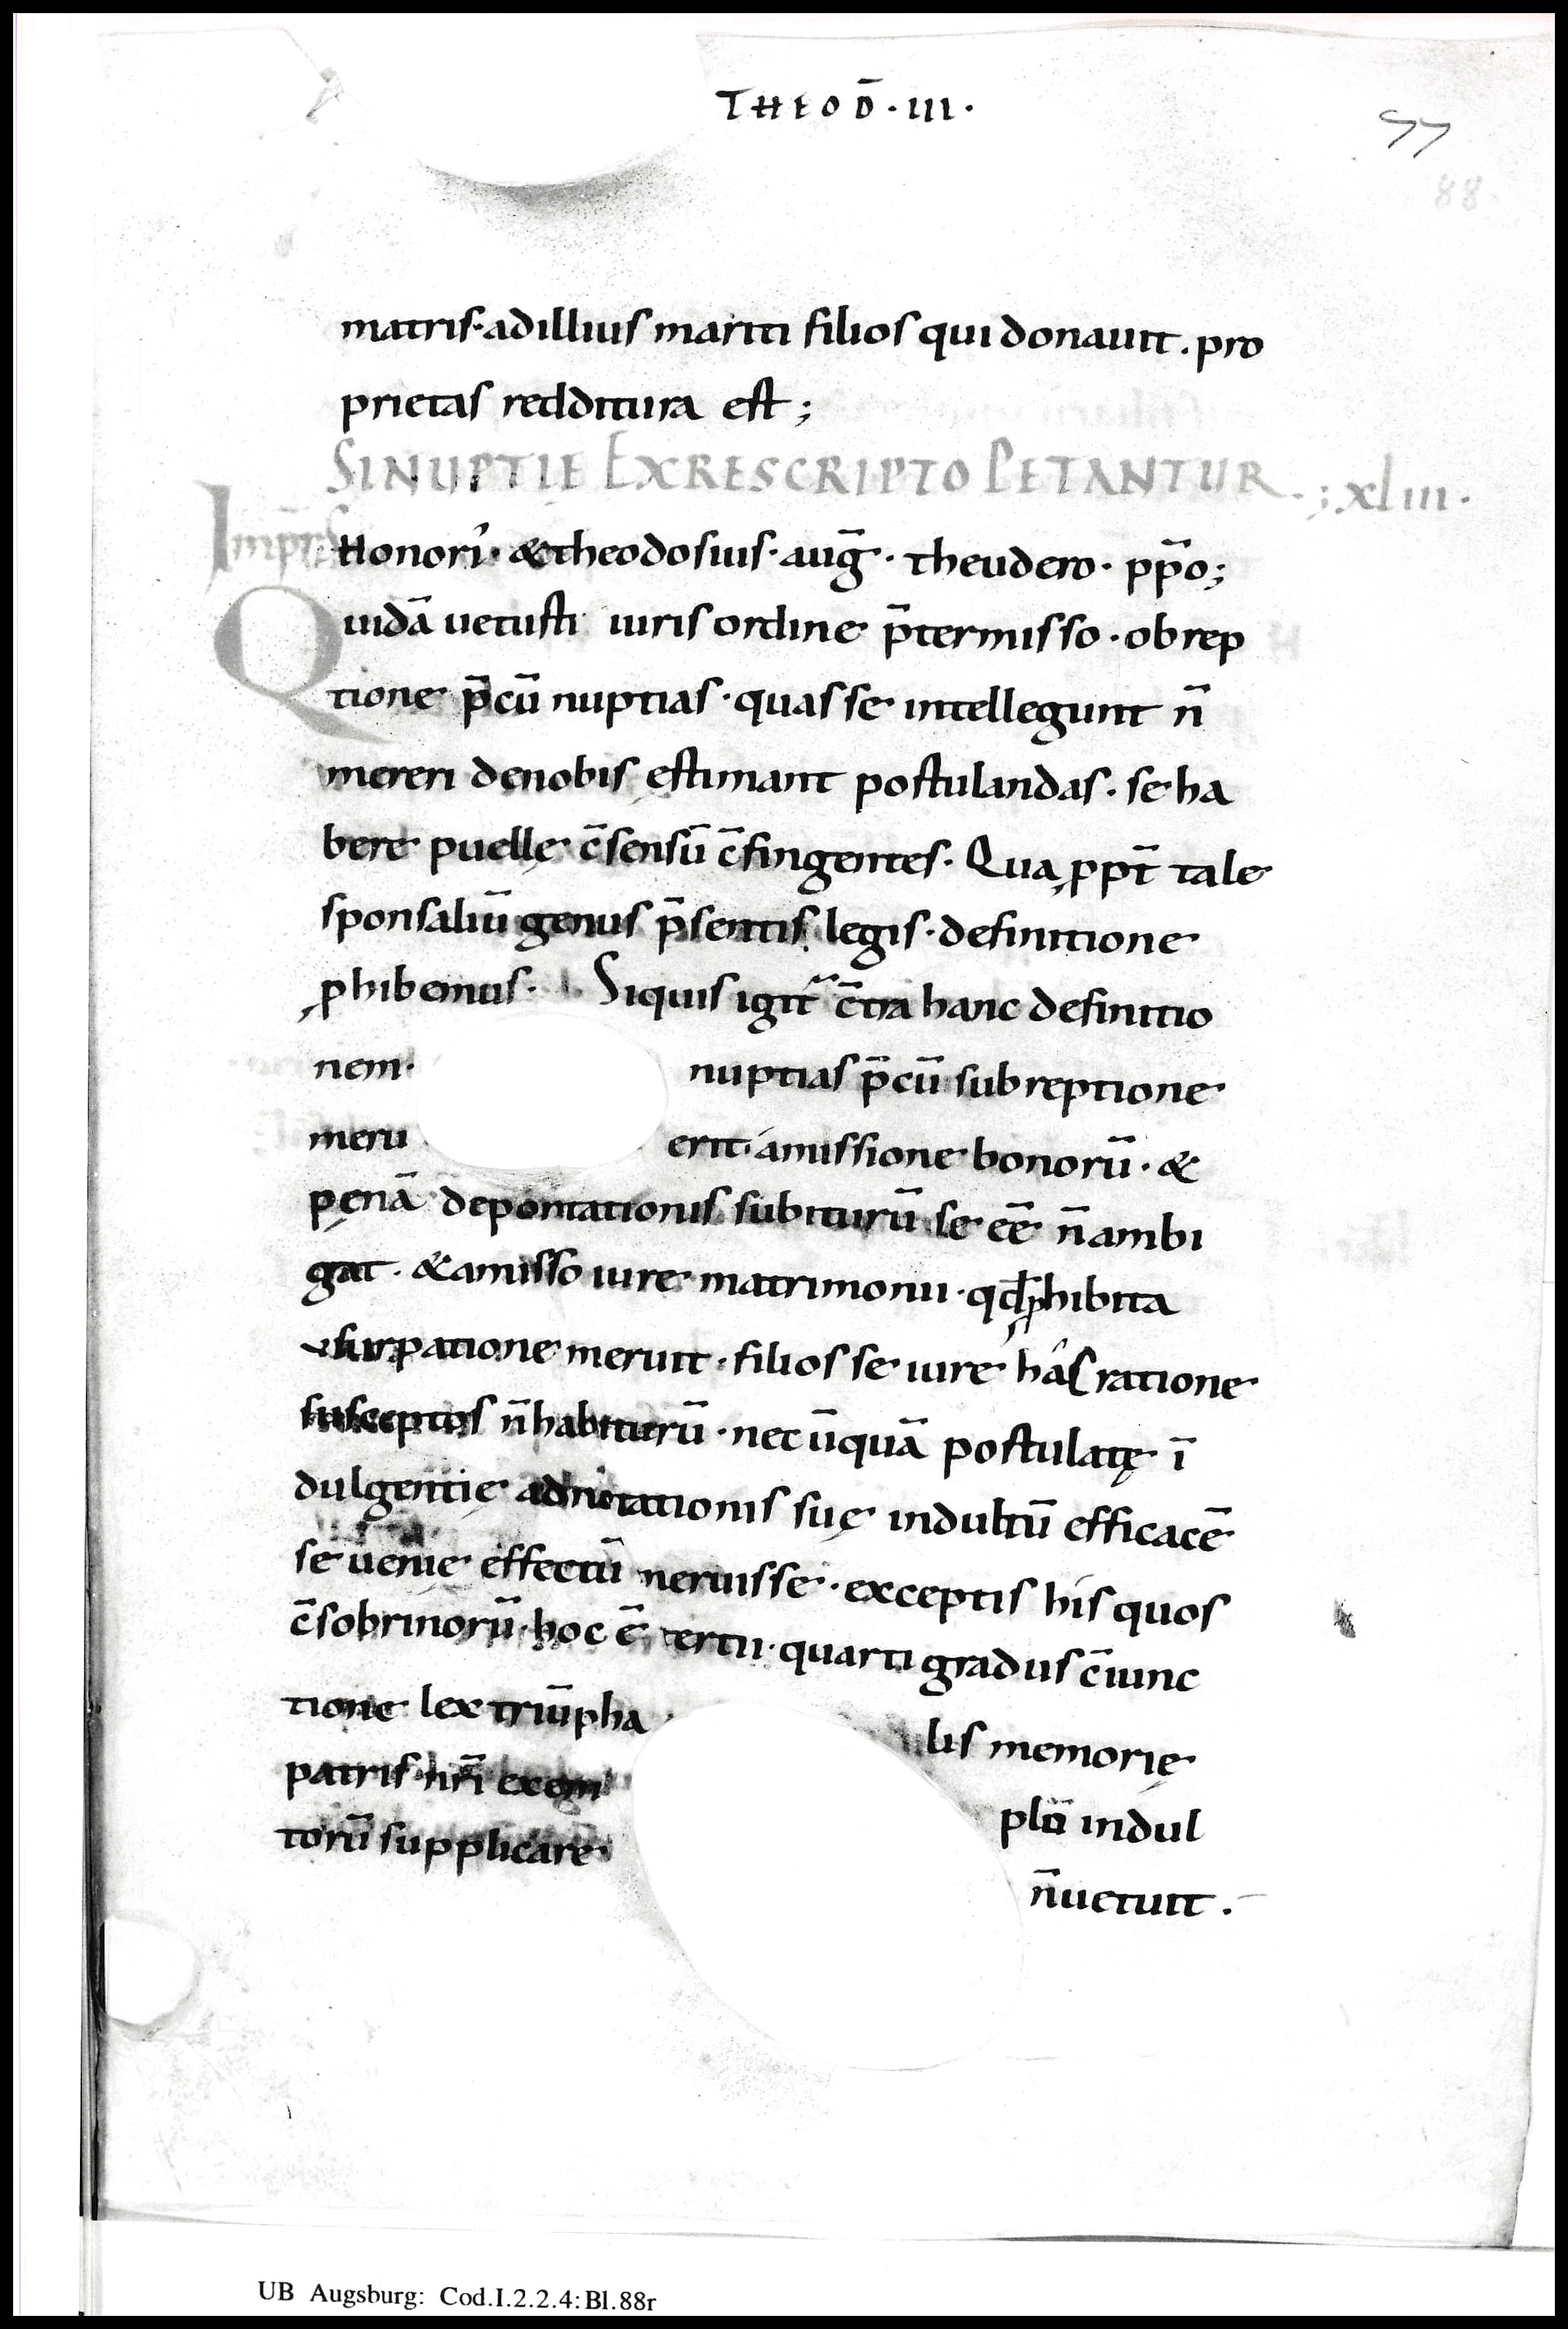 THEOD̄·III·
77
88
matris·adillius mariti filios qui donauit. pro
prietas redditura est;
SINUPTIE EXRESCRIPTO PETANTUR.; xliii.
Imp̄rs Honori'· &theodosius·aug̅· theudero· pp̄o;
Quidā uetusti iuris ordine p̄termisso·obrep
tione p̄cū nuptias·quas se intellegunt n̄
mereri denobis ęstimant postulandas·se ha
bere puellę c̄sensū c̄fingentes·Qua ꝓpt̄ tale
sponsaliū genus p̄sentis legis·definitione
ꝓhibemus· Siquis igit̄ c̄tra hanc definitio
nem· nuptias p̄cū subreptione
meru erit·amissione bonorū·&
pęnā deportationis subiturū se eē n̄ambi
gat·&amisso iure matrimonii·qđꝓhibita
usurpatione meruit·filios se iure hac ratione
susceptos n̄habiturū·nec ūquā postulatę ī
dulgentię adnotationis suę indultū efficacē
se uenię effectū meruisse·exceptis his quos
c̄sobrinorū·hoc ē tertii·quarti gradus c̄iunc
tione lex triūpha lis memorię
patris·nr̄i exem plū indul
torū supplicare n̄uetuit.
UB Augsburg: Cod.I.2.2.4:Bl.88r